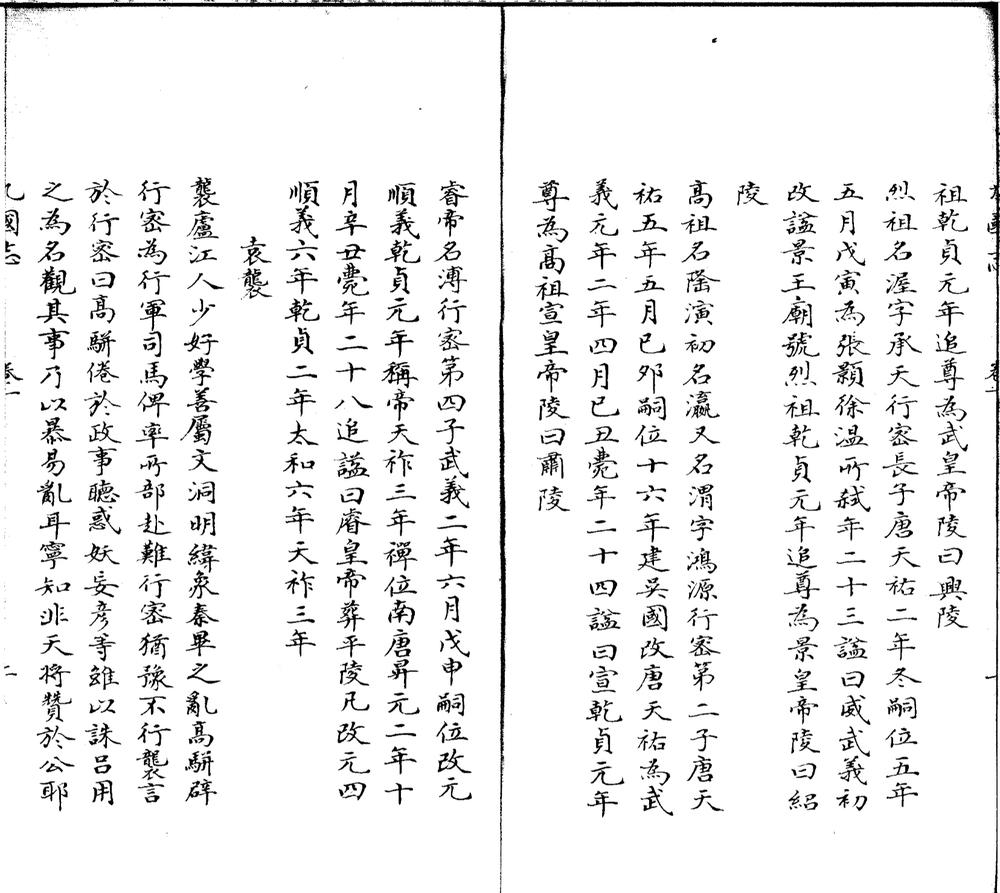 祖乾貞元年追尊為武皇帝陵曰興陵
烈祖名渥字承天行密長子唐天祐二年冬嗣位五年
五月戊寅為張顥徐溫所弒年二十三諡曰威武義初
改諡景王廟號烈祖乾貞元年追尊為景皇帝陵曰紹
陵
高祖名隆演初名瀛又名渭字鴻源行密第二子唐天
祐五年五月己夘嗣位十六年建吳國改唐天祐為武
義元年二年四月己丑薨年二十四諡曰宣乾貞元年
尊為高祖宣皇帝陵曰肅陵
睿帝名溥行密第四子武義二年六月戊申嗣位改元
順義乾貞元年稱帝天祚三年禪位南唐昇元二年十
月辛丑薨年二十八追諡曰睿皇帝葬平陵凡改元四
順義六年乾貞二年太和六年天祚三年
袁襲
襲廬江人少好學善屬文洞明緯象秦畢之亂高駢辟
行密為行軍司馬俾率所部赴難行密猶豫不行襲言
於行密曰高駢倦於政事聽惑妖妄彥等雖以誅呂用
之為名觀其事乃以暴易亂耳寧知非天將贊於公耶
九國志 卷一 二